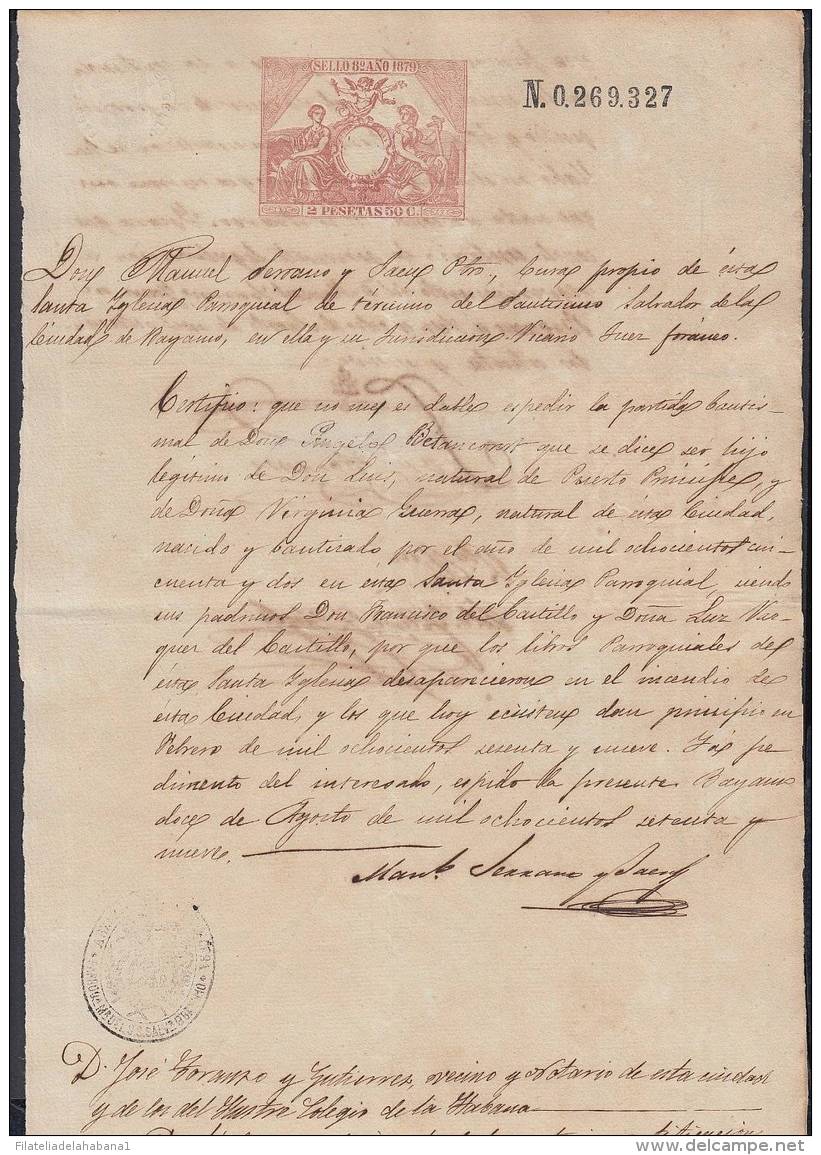 SELLO 8º AÑO 1879
N. 0.269.327
2 PESETAS 50 C.
Don Manuel Serrano y Saenz Pbro, Cura propio de ésta
Santa Yglesia Parroquial de término del Santisimo Salvador de la
Ciudad de Bayamo, en ella y su Jurisdiccion Vicario Juez foráneo.
Certifico: que no me es dable espedir la partida bautis-
mal de Don Angel Betancourt que se dice ser hijo
legitimo de Don Luis, natural de Puerto Principe, y
de Doña Virginia Guerra, natural de ésta Ciudad,
nacido y bautizado por el año de mil ochocientos cin-
cuenta y dos en ésta Santa Yglesia Parroquial, siendo
sus padrinos Don Francisco del Castillo y Doña Luz Vaz-
quez del Castillo, por que los libros Parroquiales de
ésta Santa Yglesia desaparecieron en el incendio de
ésta Ciudad, y los que hoy ecsisten dan principio en
Febrero de mil ochocientos sesenta y nueve. Y á pe-
dimento del interesado, espido la presente. Bayamo
doce de Agosto de mil ochocientos setenta y
nueve.
Manl. Serrano y Saenz
D. José Toranzo y Gutierrez, vecino y Notario de esta ciudad
y de los del Ilustre Colegio de la Habana
Filateliadelahabana1
delcampe.net